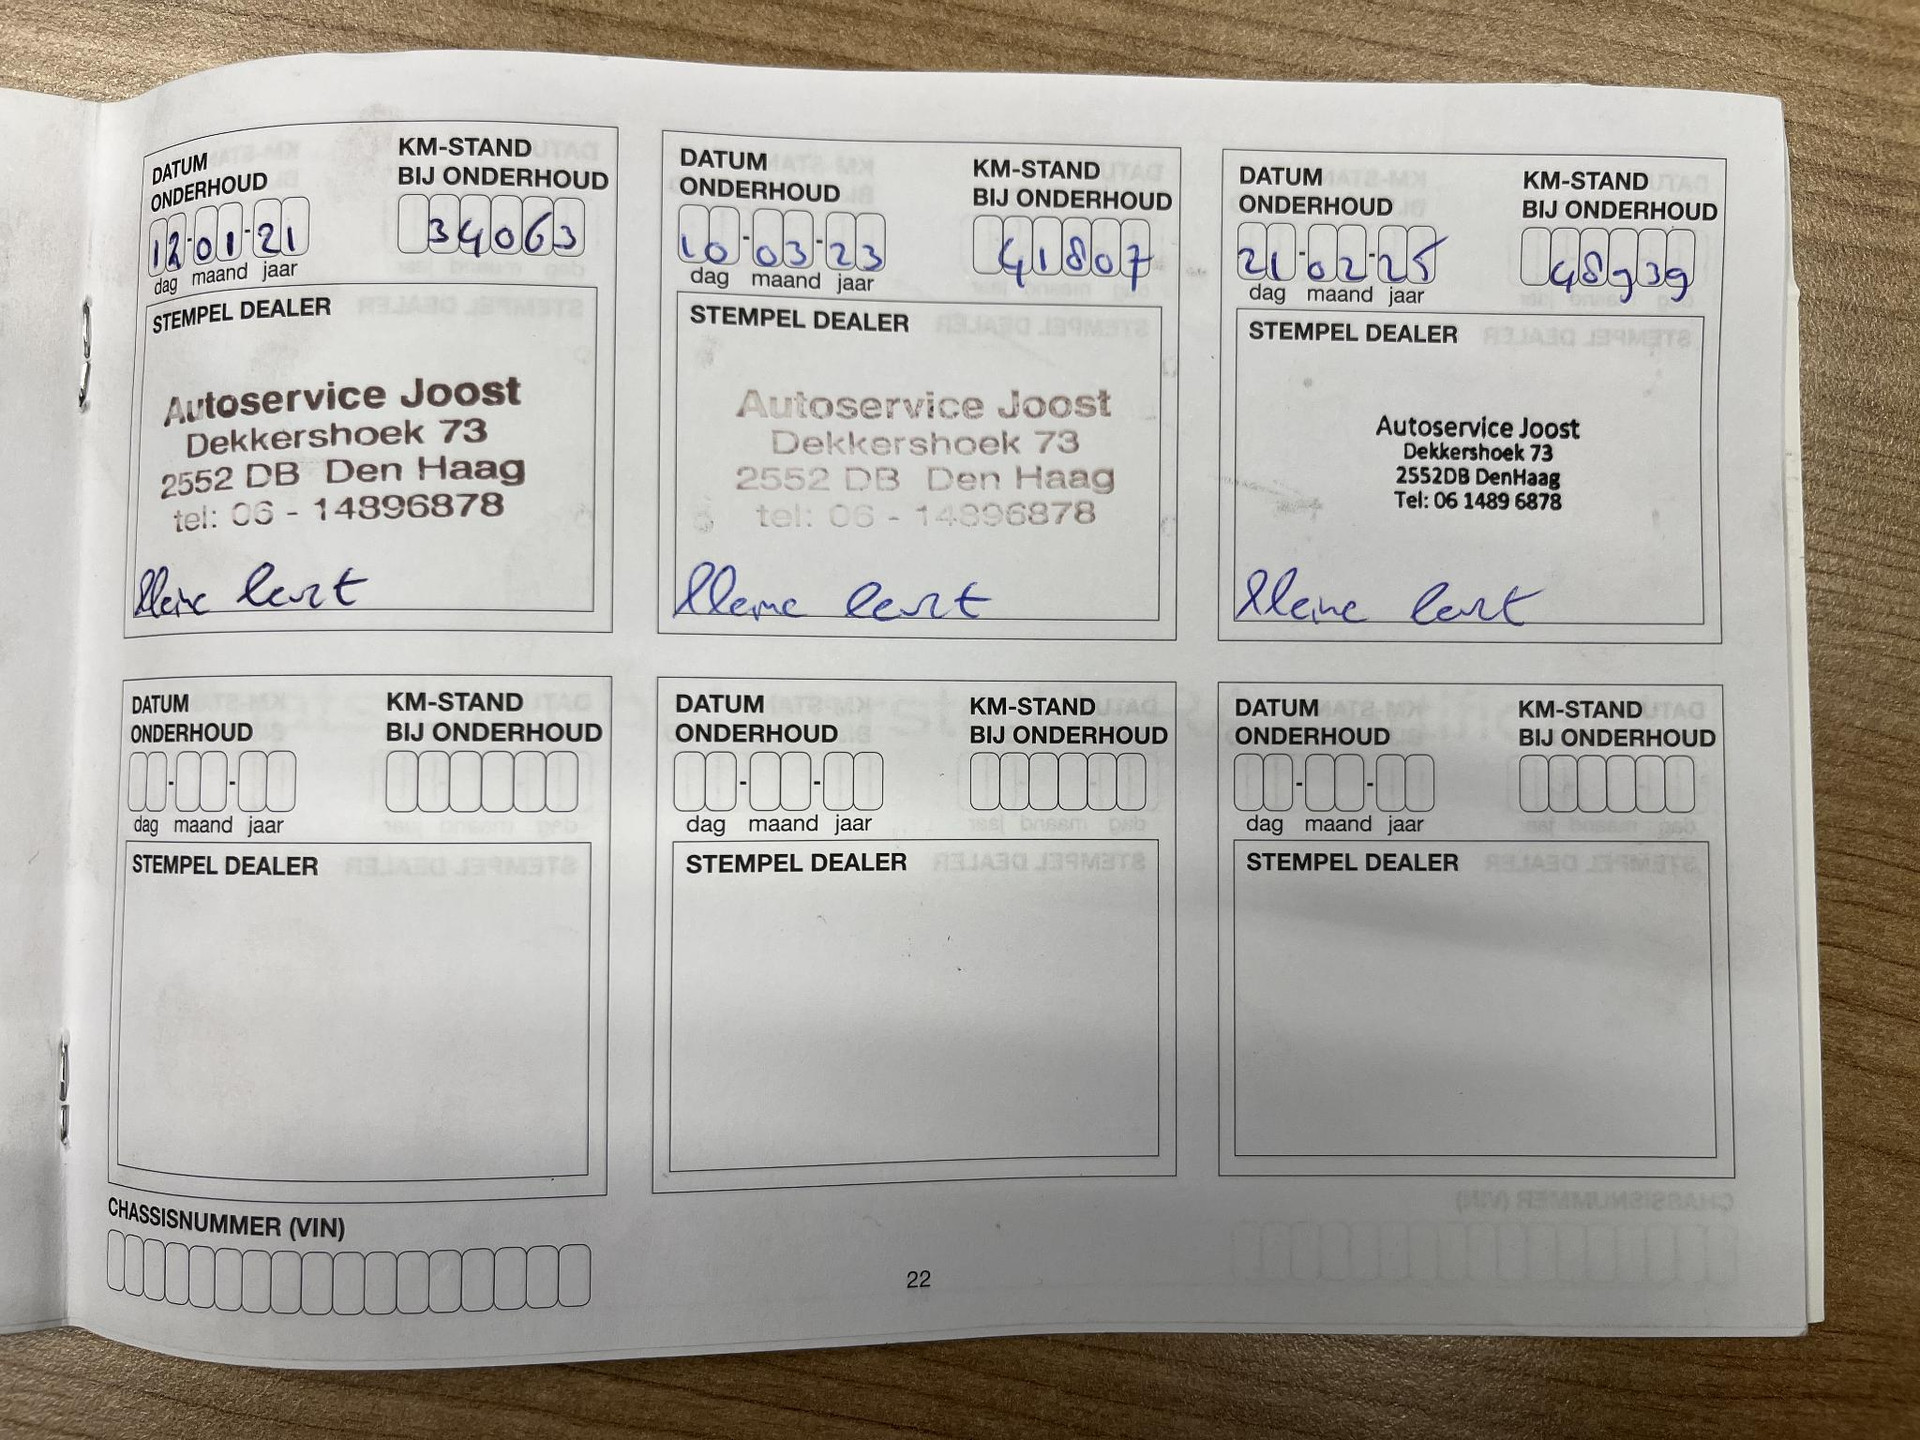 DATUM
ONDERHOUD
KM-STAND
BIJ ONDERHOUD
12-01-21
34063
dag maand jaar
STEMPEL DEALER
Autoservice Joost
Dekkershoek 73
2552 DB Den Haag
tel: 06 - 14896878
kleine beurt
DATUM
ONDERHOUD
KM-STAND
BIJ ONDERHOUD
10-03-23
41807
dag maand jaar
STEMPEL DEALER
Autoservice Joost
Dekkershoek 73
2552 DB Den Haag
tel: 06 - 14896878
kleine beurt
DATUM
ONDERHOUD
KM-STAND
BIJ ONDERHOUD
21-02-25
48939
dag maand jaar
STEMPEL DEALER
Autoservice Joost
Dekkershoek 73
2552DB DenHaag
Tel: 06 1489 6878
kleine beurt
DATUM
ONDERHOUD
KM-STAND
BIJ ONDERHOUD
- -
dag maand jaar
STEMPEL DEALER
DATUM
ONDERHOUD
KM-STAND
BIJ ONDERHOUD
- -
dag maand jaar
STEMPEL DEALER
DATUM
ONDERHOUD
KM-STAND
BIJ ONDERHOUD
- -
dag maand jaar
STEMPEL DEALER
CHASSISNUMMER (VIN)
22